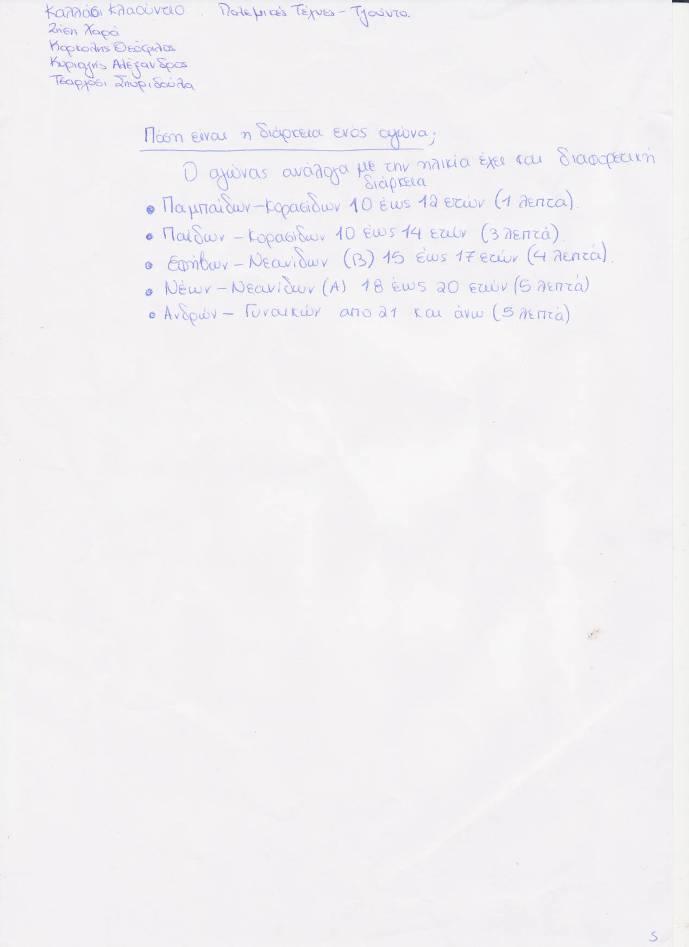 Καλλόσι Κλαούντιο . Πολεμικές Τέχνες - Τζούντο.
Ζήση Χαρά
Καρκαλής Θεόφιλος
Κυριαζής Αλέξανδρος
Τσαργόσι Σπυριδούλα
Πόση ειναι η διάρκεια ενός αγώνα;
Ο αγώνας ανάλογα με την ηλικία έχει και διαφορετική
διάρκεια
• Παμπαίδων-Κορασίδων 10 έως 12 ετών (1 λεπτα).
• Παίδων - Κορασίδων 10 έως 14 ετών (3 λεπτά).
• Εφήβων - Νεανίδων (Β) 15 έως 17 ετών (4 λεπτά).
• Νέων - Νεανίδων (Α) 18 έως 20 ετών (5 λεπτά)
• Ανδρών - Γυναικών απο 21 και άνω (5 λεπτά)
5